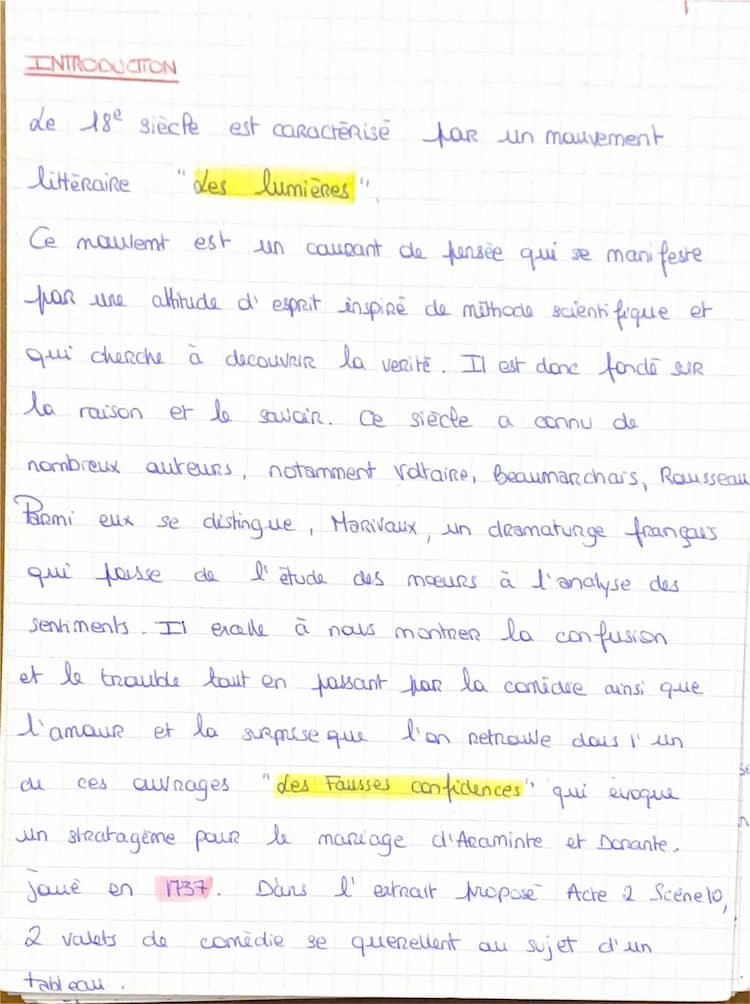 INTRODUCTION
Le 18e siècle est caractérisé par un mouvement
littéraire "Les lumières".
Ce mouvemt est un courant de pensée qui se manifeste
par une attitude d'esprit inspiré de méthode scientifique et
qui cherche à decouvrir la verité. Il est donc fondé sur
la raison et le savoir. Ce siècle a connu de
nombreux auteurs, notamment Voltaire, Beaumarchais, Rousseau
Parmi eux se distingue, Marivaux, un dramaturge français
qui passe de l'étude des mœurs à l'analyse des
sentiments. Il excelle à nous montrer la confusion
et le trouble tout en passant par la comidée ainsi que
l'amour et la surprise que l'on retrouve dans l'un
de ces ouvrages "Les Fausses confidences" qui évoque
un stratagème pour le mariage d'Araminte et Dorante.
joué en 1737. Dans l'extrait proposé Acte 2 Scène10,
2 valets de comédie se querellent au sujet d'un
tableau.